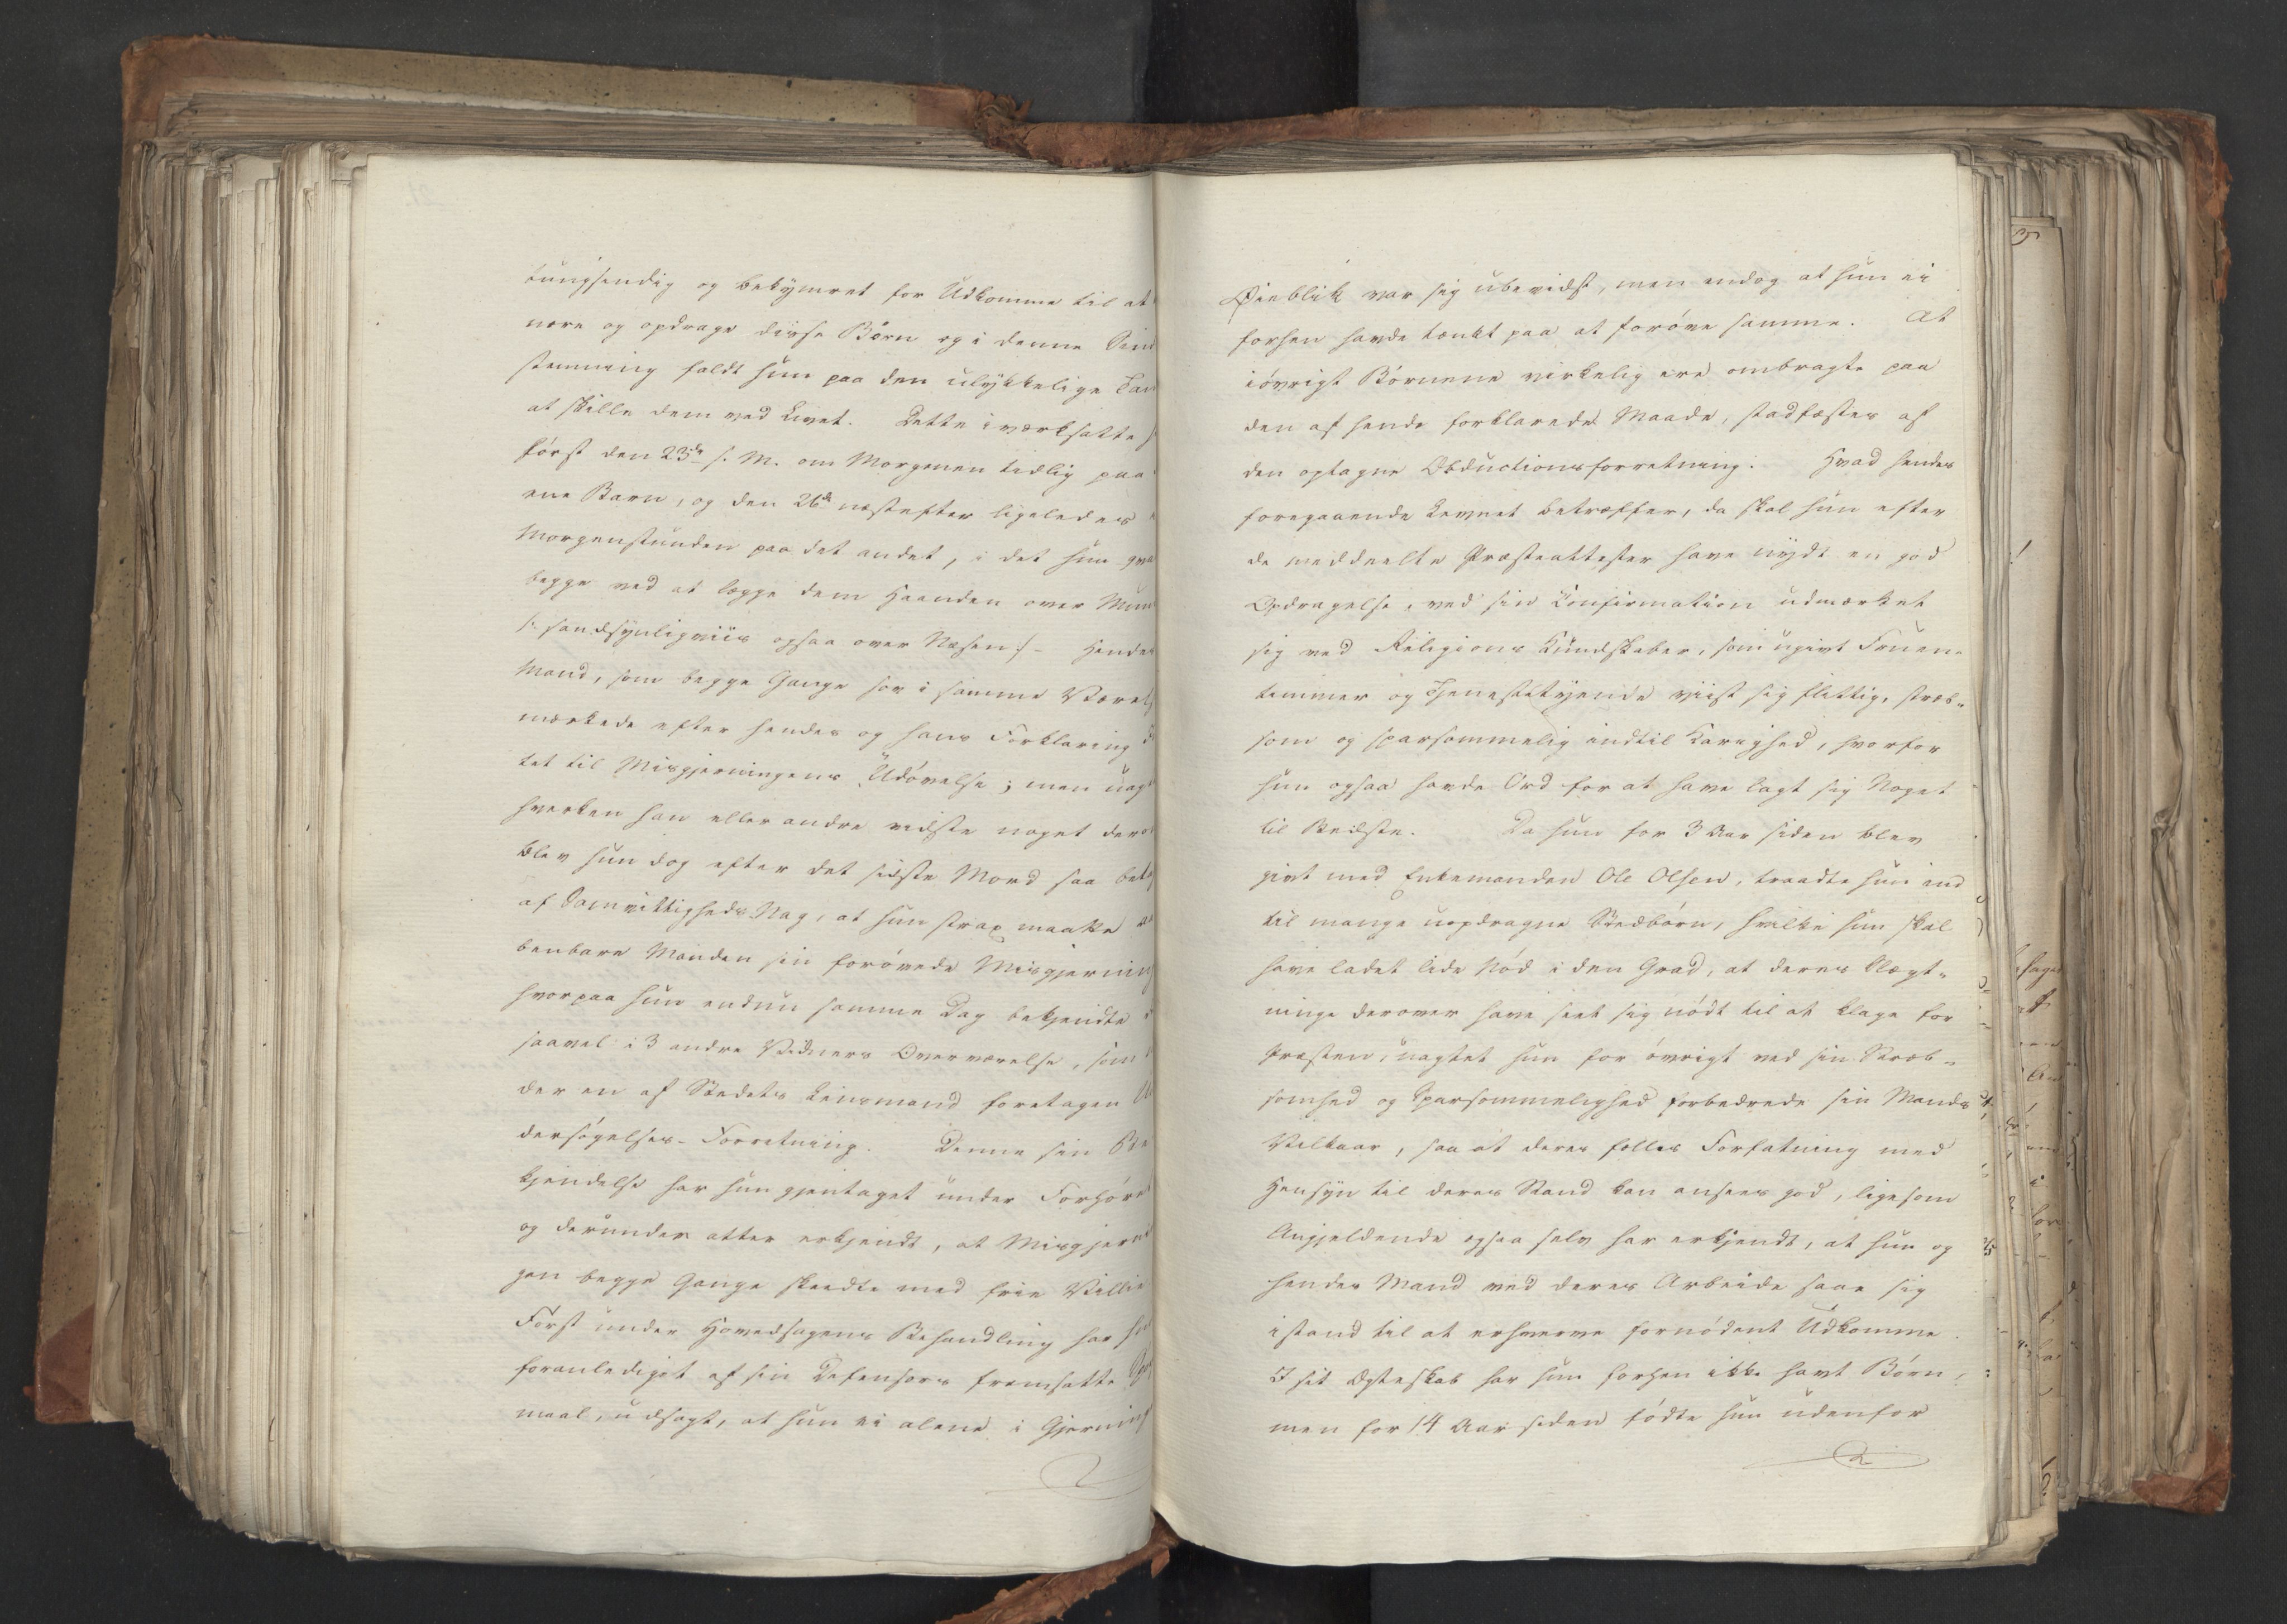 tungsindig og bekymret for Udkomme til at
nære og opdrage disse Børn og i denne Sind
stemning faldt hun paa den ulykkelige Tan
at skille dem ved Livet. Dette iværksatte
først den 23de s. M. om Morgenen tidlig paa
ene Barn, og den 26de næstefter ligeledes
Morgenstunden paa det andet, i det hun qva
begge ved at lægge dem Haanden over Mun
/: sandsynligviis ogsaa over Næsen :/ - Hendes
Mand, som begge Gange sov i samme Værels
mærkede efter hendes og hans Forklaring
tet til Misgjerningens Udøvelse; men uag
hverken han eller andre vidste noget dero
blev hun dog efter det sidste Mord saa bet
af Samvittigheds Nag, at hun strax maatte aa
benbare Manden sin forøvede Misgjerning
hvorpaa hun endnu samme Dag bekjendte
saavel i 3 andre Vidners Overværelse, som
der en af Stedets Lensmand foretagen Un
dersøgelses-Forretning. Denne sin Be
kjendelse har hun gjentaget under Forhøret
og derunder atter erkjendt, at Misgjernin
gen begge Gange skeedte med frie Villie
Først under Hovedsagens Behandling har hun
foranlediget af sin Defensors fremsatte Spørs
maal, udsagt, at hun ei alene i Gjernings
Øieblik var sig ubevidst, men endog at hun ei
forhen havde tænkt paa at forøve samme. At
iøvrigt Børnene virkelig ere ombragte paa
den af hende forklarede Maade, stadfæstes af
den optagne Obductionsforretning. Hvad hendes
foregaaende Levnet betræffer, da skal hun efter
de meddeelte Præsteattester have nydt en god
Opdragelse, ved sin Confirmation udmærket
sig ved Religions Kundskaber, som ugivt Fruen-
temmer og Tjenestetyende viist sig flittig, stræb-
som og sparsommelig indtil Karrighed, hvorfor
hun ogsaa havde Ord for at have lagt sig Noget
til Bedste. Da hun for 3 Aar siden blev
givt med Enkemanden Ole Olsen, traadte hun ind
til mange uopdragne Stedbørn, hvilke hun skal
have ladet lide Nød i den Grad, at deres Slægt-
ninge derover have seet sig nødt til at klage for
Præsten, uagtet hun for øvrigt ved sin Stræb-
somhed og Sparsommelighed forbedrede sin Mands
Vilkaar, saa at deres fælles Forfatning med
Hensyn til deres Stand kan ansees god, ligesom
Angjeldende ogsaa selv har erkjendt, at hun og
hendes Mand ved deres Arbeide saae sig
istand til at erhverve fornødent Udkomme.
I sit Ægteskab har hun forhen ikke havt Børn,
men for 14 Aar siden fødte hun udenfor